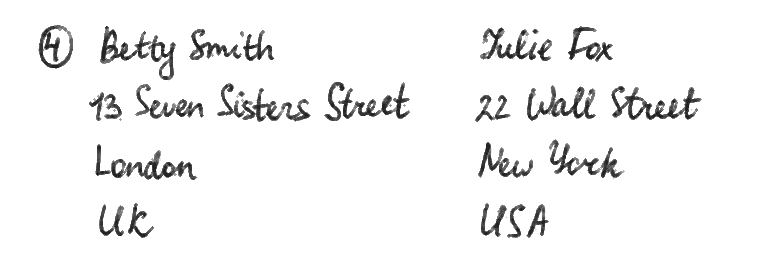 ④ Betty Smith
13 Seven Sisters Street
London
UK
Julie Fox
22 Wall Street
New York
USA